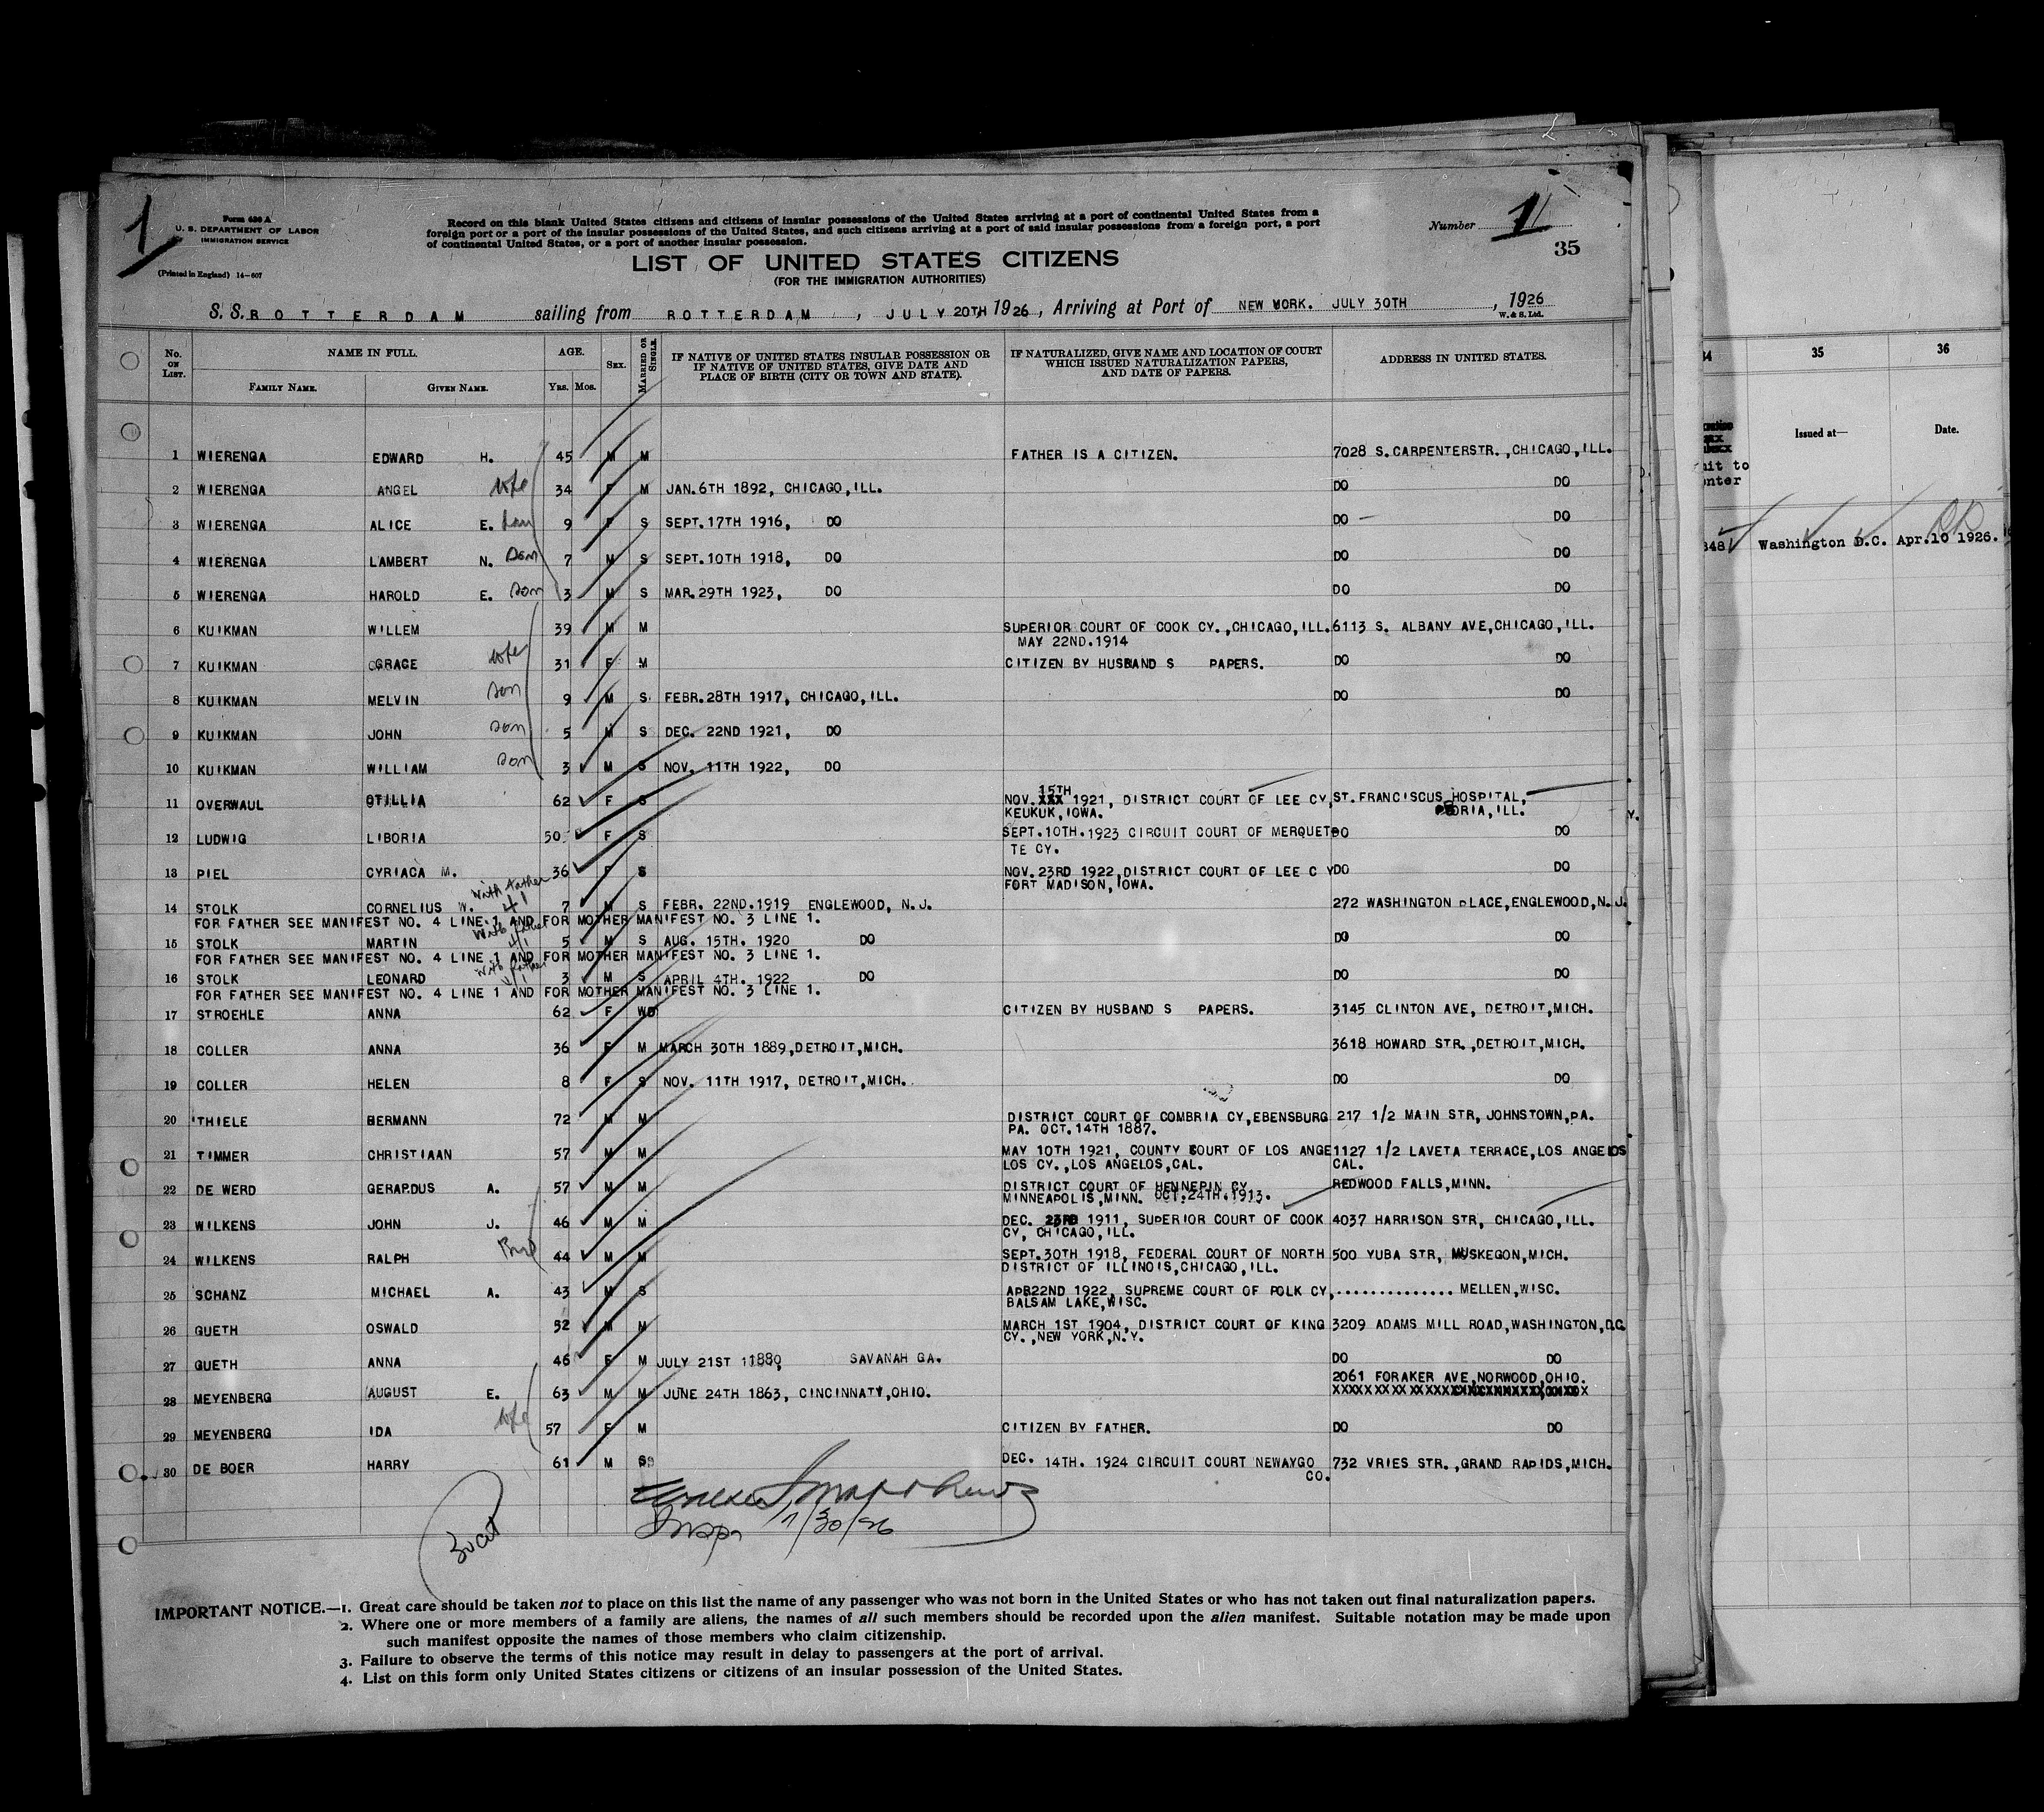 1
Form 630 A
U. S. DEPARTMENT OF LABOR
IMMIGRATION SERVICE
(Printed in England) 14-607
Record on this blank United States citizens and citizens of insular possessions of the United States arriving at a port of continental United States from a
foreign port or a port of the insular possessions of the United States, and such citizens arriving at a port of said insular possessions from a foreign port, a port
of continental United States, or a port of another insular possession.
Number 1
35
LIST OF UNITED STATES CITIZENS
(FOR THE IMMIGRATION AUTHORITIES)
S. S. ROTTERDAM sailing from ROTTERDAM, JULY 20TH 1926, Arriving at Port of NEW WORK. JULY 30TH, 1926
W. & S. Ltd.
No. ON LIST. NAME IN FULL. AGE. SEX. MARRIED OR SINGLE. IF NATIVE OF UNITED STATES INSULAR POSSESSION OR IF NATIVE OF UNITED STATES, GIVE DATE AND PLACE OF BIRTH (CITY OR TOWN AND STATE). IF NATURALIZED, GIVE NAME AND LOCATION OF COURT WHICH ISSUED NATURALIZATION PAPERS, AND DATE OF PAPERS. ADDRESS IN UNITED STATES.
FAMILY NAME. GIVEN NAME. YRS. MOS.
1 WIERENGA EDWARD H. 45 M M FATHER IS A CITIZEN. 7028 S.CARPENTERSTR.,CHICAGO,ILL.
2 WIERENGA ANGEL wife 34 F M JAN.6TH 1892, CHICAGO,ILL. DO DO
3 WIERENGA ALICE E. 9 F S SEPT.17TH 1916, DO DO DO
4 WIERENGA LAMBERT N. son 7 M S SEPT.10TH 1918, DO DO DO
5 WIERENGA HAROLD E. son 3 M S MAR.29TH 1923, DO DO DO
6 KUIKMAN WILLEM 39 M M SUPERIOR COURT OF COOK CY.,CHICAGO,ILL. 6113 S. ALBANY AVE,CHICAGO,ILL.
MAY 22ND.1914
7 KUIKMAN GRACE wife 31 F M CITIZEN BY HUSBAND S PAPERS. DO DO
8 KUIKMAN MELVIN son 9 M S FEBR.28TH 1917, CHICAGO,ILL. DO DO
9 KUIKMAN JOHN son 5 M S DEC. 22ND 1921, DO
10 KUIKMAN WILLIAM son 3 M S NOV. 11TH 1922, DO
15TH
11 OVERWAUL OTILLIA 62 F S NOV.XXX 1921, DISTRICT COURT OF LEE CY, ST.FRANCISCUS HOSPITAL,
KEUKUK,IOWA. PEORIA,ILL.
12 LUDWIG LIBORIA 50 F S SEPT.10TH.1923 CIRCUIT COURT OF MERQUET DO DO
TE CY.
13 PIEL CYRIACA M. 36 F S NOV.23RD 1922,DISTRICT COURT OF LEE C Y DO DO
FORT MADISON,IOWA.
With father 4/1
14 STOLK CORNELIUS W. 7 M S FEBR. 22ND.1919 ENGLEWOOD, N.J. 272 WASHINGTON PLACE,ENGLEWOOD,N.J.
FOR FATHER SEE MANIFEST NO. 4 LINE 1 AND FOR MOTHER MANIFEST NO. 3 LINE 1.
With father 4/1
15 STOLK MARTIN 5 M S AUG. 15TH. 1920 DO DO DO
FOR FATHER SEE MANIFEST NO. 4 LINE 1 AND FOR MOTHER MANIFEST NO. 3 LINE 1.
With father 4/1
16 STOLK LEONARD 3 M S APRIL 4TH. 1922 DO DO DO
FOR FATHER SEE MANIFEST NO. 4 LINE 1 AND FOR MOTHER MANIFEST NO. 3 LINE 1.
17 STROEHLE ANNA 62 F WD CITIZEN BY HUSBAND S PAPERS. 3145 CLINTON AVE, DETROIT,MICH.
18 COLLER ANNA 36 F M MARCH 30TH 1889,DETROIT,MICH. 3618 HOWARD STR.,DETROIT,MICH.
19 COLLER HELEN 8 F S NOV. 11TH 1917, DETROIT,MICH. DO DO
20 THIELE HERMANN 72 M M DISTRICT COURT OF COMBRIA CY,EBENSBURG 217 1/2 MAIN STR, JOHNSTOWN,PA.
PA. OCT.14TH 1887.
21 TIMMER CHRISTIAAN 57 M M MAY 10TH 1921, COUNTY COURT OF LOS ANGE 1127 1/2 LAVETA TERRACE,LOS ANGELOS
LOS CY.,LOS ANGELOS,CAL. CAL.
22 DE WERD GERARDUS A. 57 M M DISTRICT COURT OF HENNEPIN CY REDWOOD FALLS,MINN.
MINNEAPOLIS,MINN. OCT.24TH.1913.
23 WILKENS JOHN J. 46 M M DEC. 23RD 1911, SUPERIOR COURT OF COOK 4037 HARRISON STR, CHICAGO,ILL.
CY, CHICAGO,ILL.
24 WILKENS RALPH 44 M M SEPT.30TH 1918, FEDERAL COURT OF NORTH 500 YUBA STR, MUSKEGON,MICH.
DISTRICT OF ILLINOIS,CHICAGO,ILL.
25 SCHANZ MICHAEL A. 43 M S APR22ND 1922, SUPREME COURT OF POLK CY, .............. MELLEN,WISC.
BALSAM LAKE,WISC.
26 GUETH OSWALD 52 M M MARCH 1ST 1904, DISTRICT COURT OF KING 3209 ADAMS MILL ROAD,WASHINGTON,D.C.
CY.,NEW YORK,N.Y.
27 GUETH ANNA 46 F M JULY 21ST 1880, SAVANAH GA. DO DO
28 MEYENBERG AUGUST E. 63 M M JUNE 24TH 1863, CINCINNATY,OHIO. 2061 FORAKER AVE,NORWOOD,OHIO.
29 MEYENBERG IDA wife 57 F M CITIZEN BY FATHER. DO DO
30 DE BOER HARRY 61 M S DEC. 14TH. 1924 CIRCUIT COURT NEWAYGO 732 VRIES STR.,GRAND RAPIDS,MICH.
CO.
Insp 7/30/26
IMPORTANT NOTICE.—1. Great care should be taken not to place on this list the name of any passenger who was not born in the United States or who has not taken out final naturalization papers.
2. Where one or more members of a family are aliens, the names of all such members should be recorded upon the alien manifest. Suitable notation may be made upon
such manifest opposite the names of those members who claim citizenship.
3. Failure to observe the terms of this notice may result in delay to passengers at the port of arrival.
4. List on this form only United States citizens or citizens of an insular possession of the United States.
34 35 36
Issued at— Date.
mit to
enter
348 Washington D.C. Apr.10 1926.